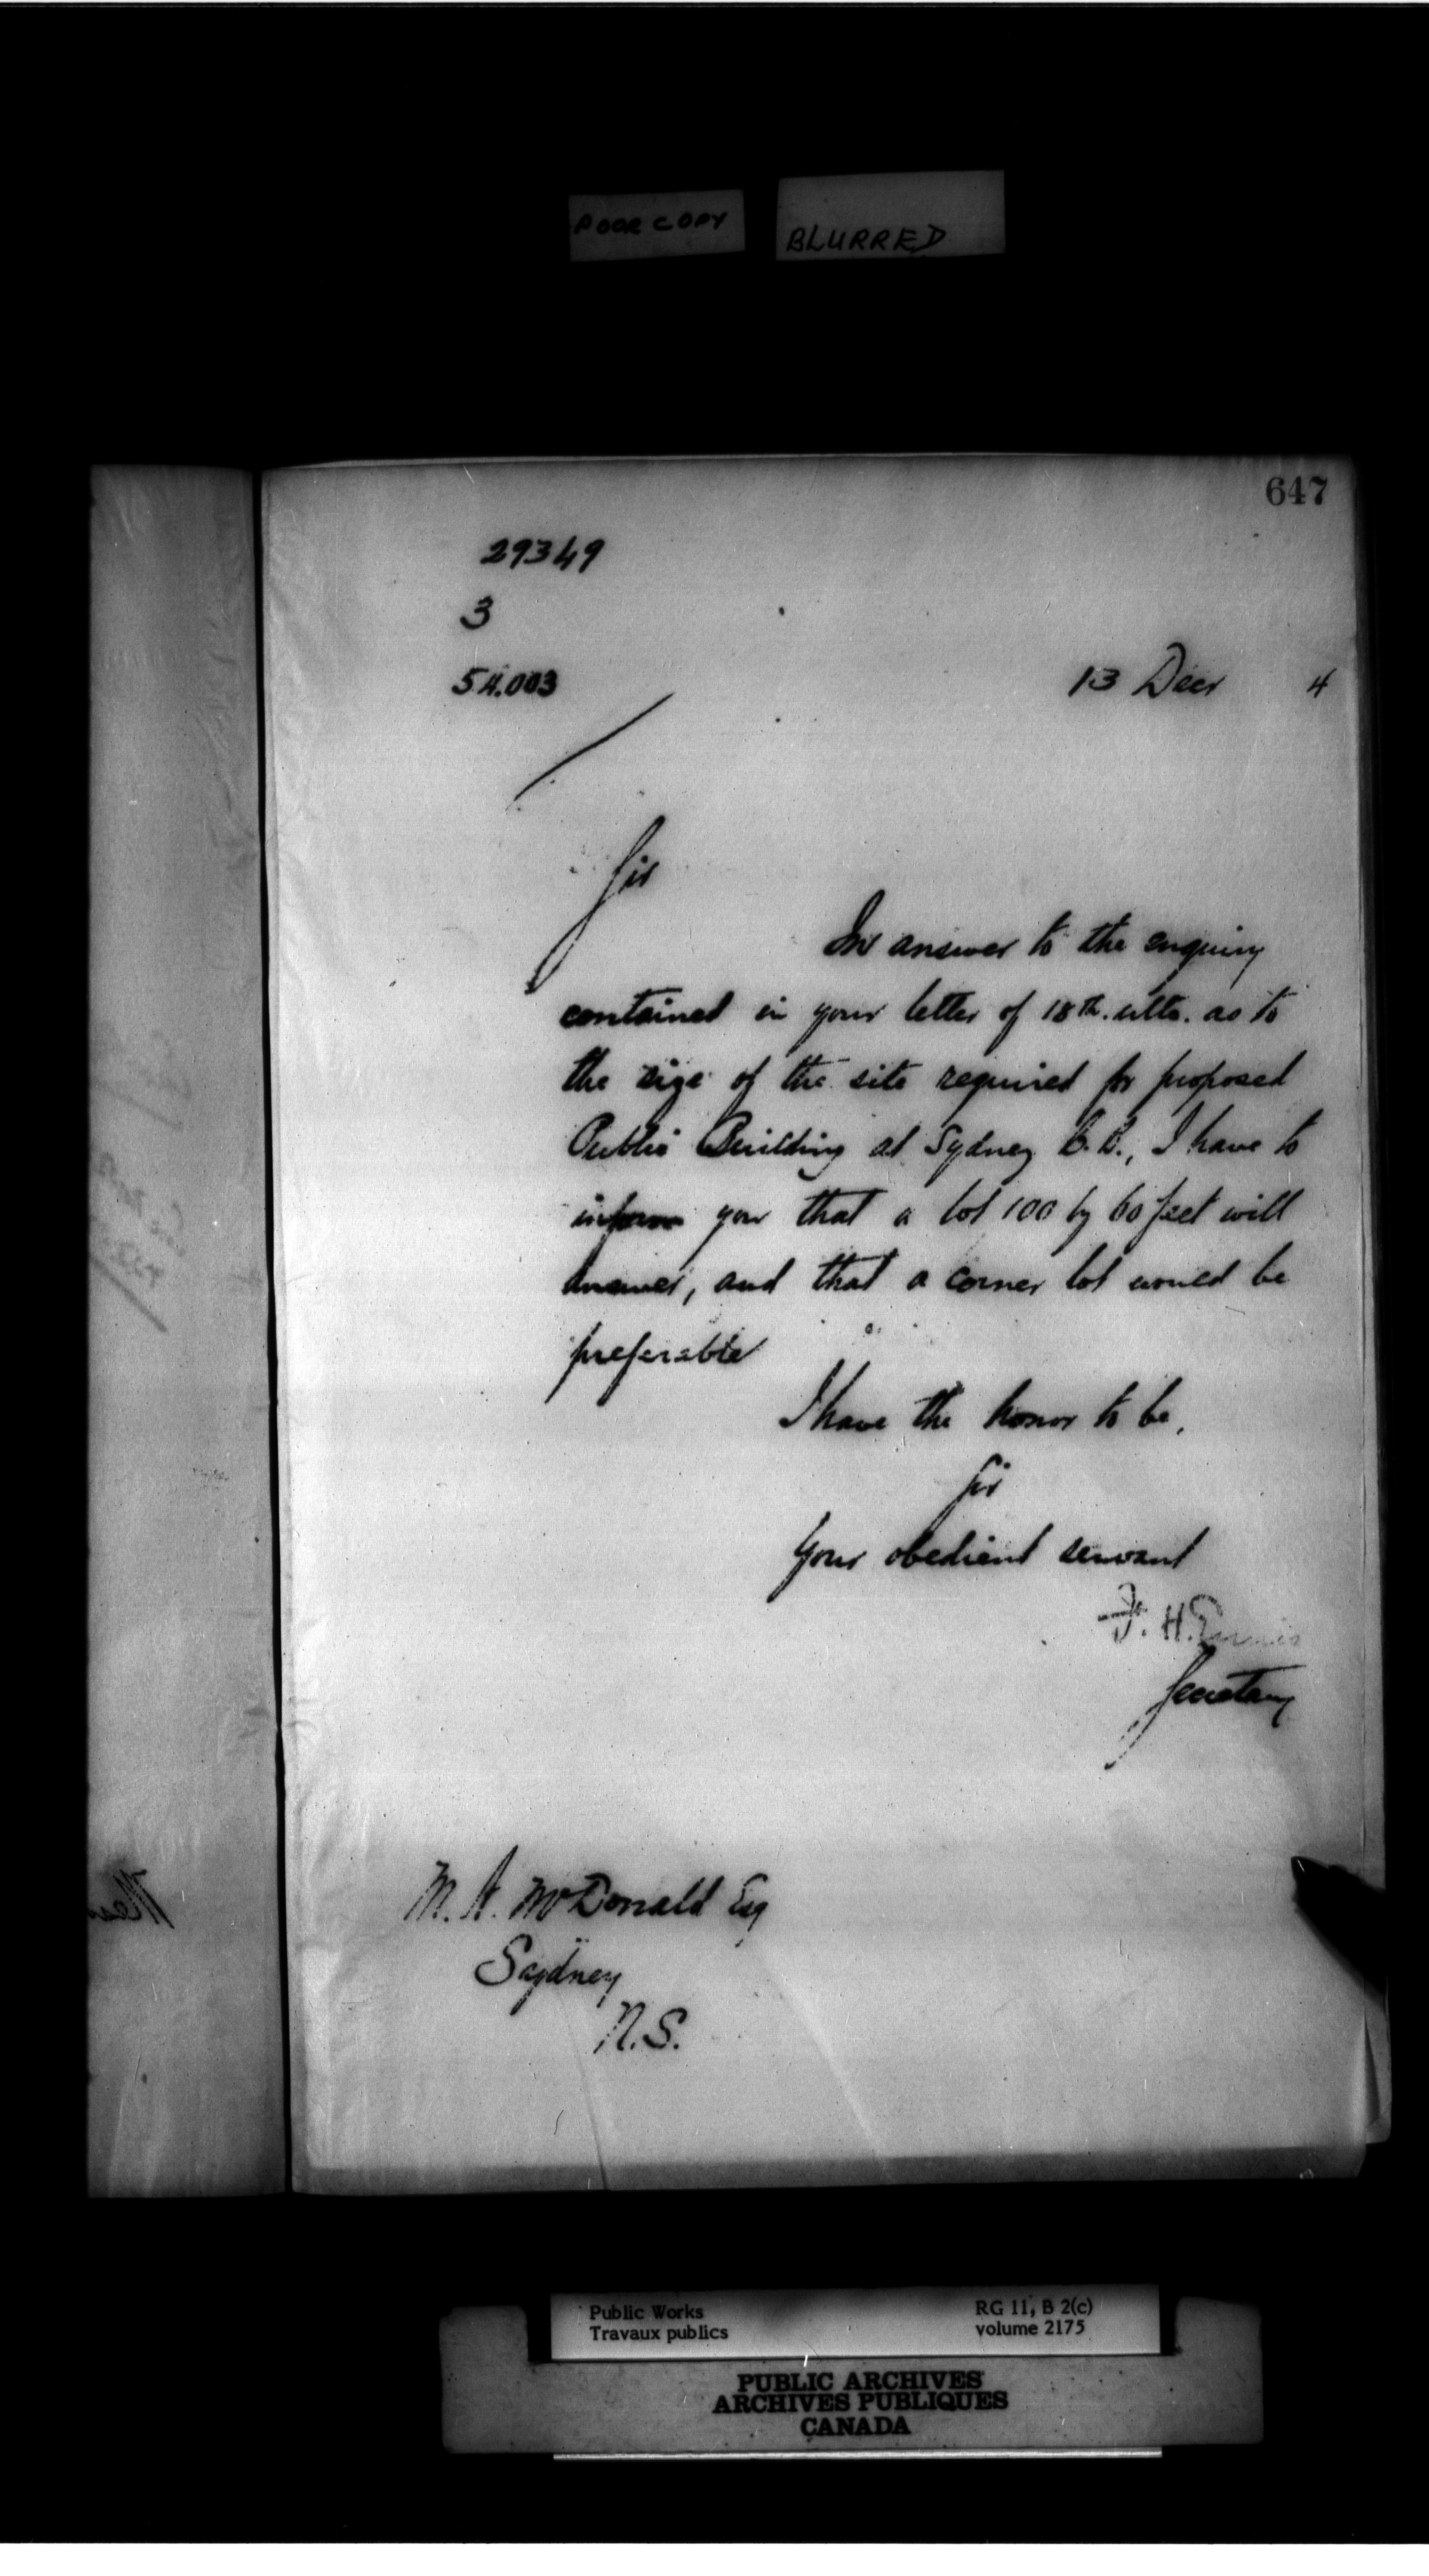 POOR COPY
BLURRED
647
29349
3
54.003
13 Decr 4
Sir
In answer to the enquiry
contained in your letter of 18th. ulto. as to
the size of the site required for proposed
Public Building at Sydney C.B., I have to
inform you that a lot 100 by 60 feet will
answer, and that a corner lot would be
preferable
I have the honor to be,
Sir
Your obedient servant
F. H. Ennis
Secretary
M. A. McDonald Esq
Sydney
N.S.
Public Works
Travaux publics
RG 11, B 2(c)
volume 2175
PUBLIC ARCHIVES
ARCHIVES PUBLIQUES
CANADA